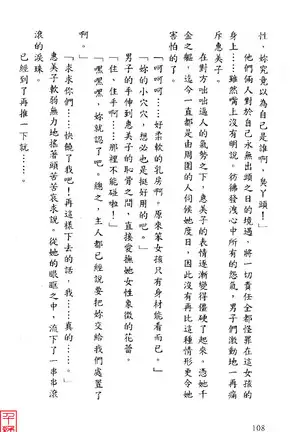 性，妳究竟以為自己是誰啊，臭丫頭！
他們倆人對於自己永無出頭之日的境遇，將一切責任全都怪罪在這女孩的
身上……雖然嘴上沒有明說。彷彿發洩心中所有的怨氣，男子們激動地一再痛
斥惠美子。
在對方咄咄逼人的氣勢之下，惠美子的表情逐漸變得僵硬了起來。憑她千
金之軀，迄今一直都是由周圍的人伺候她度日，因此沒有再比這種情形更令她
害怕的了。
「呵呵呵……好柔軟的乳房啊。原來笨女孩只有身材能看而已。」
「妳的小穴穴，想必也是挺好用的吧。」
男子的手伸到惠美子的恥骨之間，直接愛撫她女性象徵的花蕾。
「住、住手啊……那裡不能碰啦！」
「嘿嘿嘿，妳就認了吧。總之，主人都已經說要把妳交給我們處置了
啊。」
「求求你們……快饒了我吧！再這樣下去的話，我……真的……。」
惠美子軟弱無力地搖著頭苦苦哀求說。從她的眼眶之中，流下了一串串滾
滾的淚珠。
已經到了再推一下就……。
108